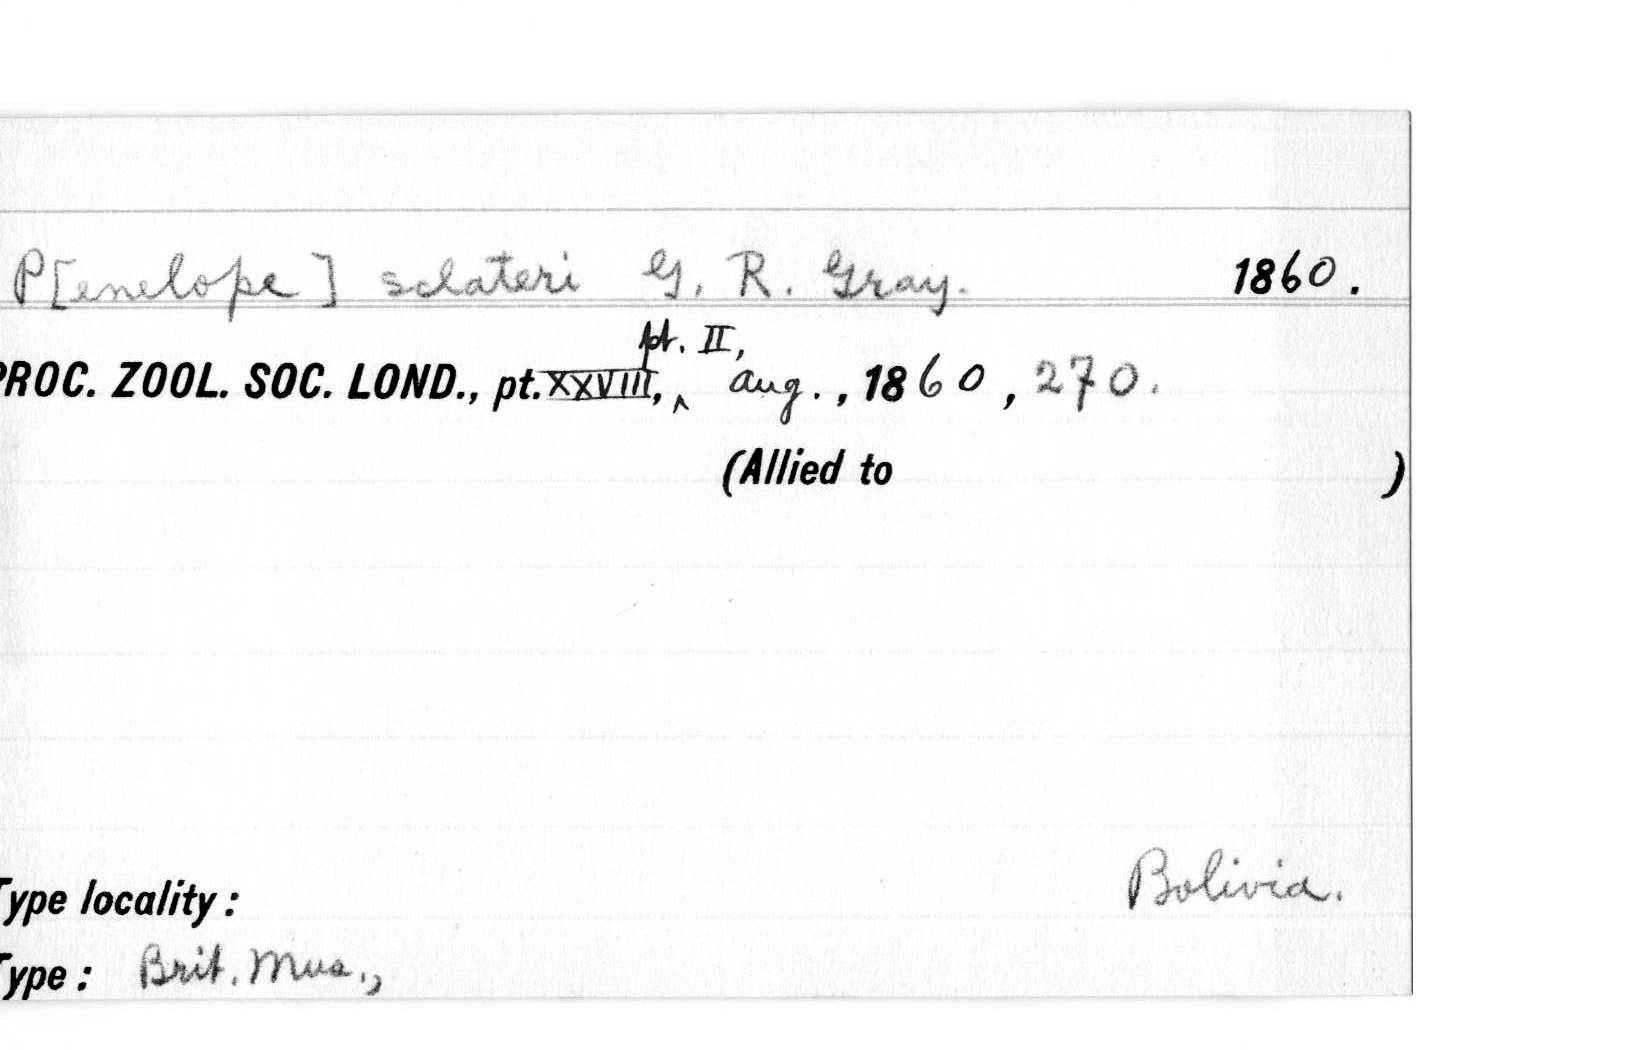 P[enelope] sclateri G. R. Gray. 1860.
pt. II,
PROC. ZOOL. SOC. LOND., pt. XXVIII, ^ Aug., 1860, 270.
(Allied to )
Type locality: Bolivia.
Type: Brit. Mus.,